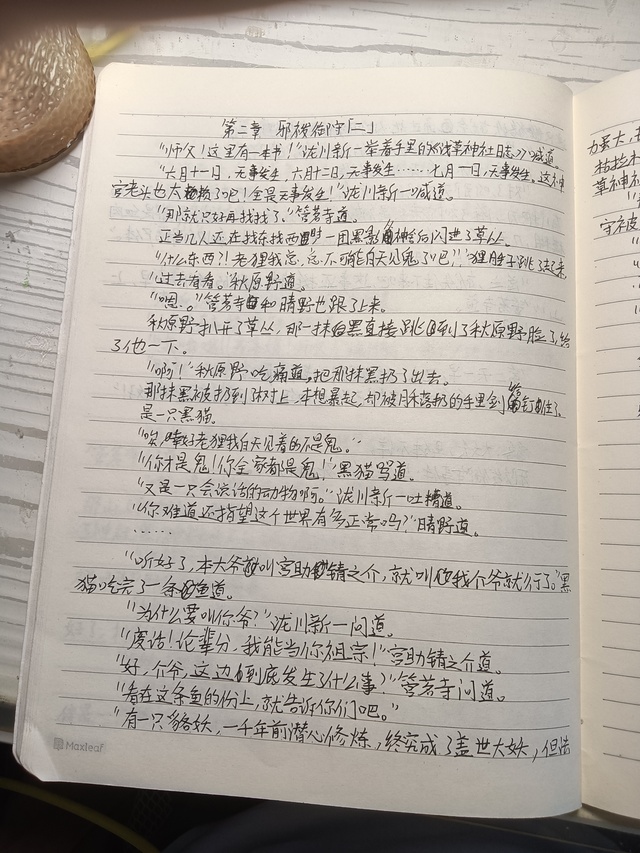 第二章 邪祓御守「二」
"师父！这里有一本书！"泷川新一举着手里的《浅草神社日志》喊道。
"六月十一日，无事发生，六月十二日，无事发生……七月一日，无事发生。这神
官老头也太敷衍了吧！全是无事发生！"泷川新一喊道。
"那就只好再找找了。"菅茗寺道。
正当几人还在找东找西时，一团黑影从神社后闪进了草丛。
"什么东西？！老狸我总，总不可能白天见鬼了吧！"狸胖子跳了起来。
"过去看看。"秋原野道。
"嗯。"菅茗寺和晴野也跟了上来。
秋原野扒开了草丛，那一抹黑直接跳到了秋原野脸上，给
了他一下。
"啊！"秋原野吃痛道，把那抹黑扔了出去。
那抹黑被扔到树上，本想暴起，却被月 的手里剑给钉住了。
是一只黑猫。
"唉，好老狸我白天见着的不是鬼。"
"你才是鬼！你全家都是鬼！"黑猫骂道。
"又是一只会说话的动物啊。"泷川新一吐槽道。
"你难道还指望这个世界有多正常吗？"晴野道。
……
"听好了，本大爷叫宫助錆之介，就叫我介爷就行了。"黑
猫吃完了一条鱼道。
"为什么要叫你爷？"泷川新一问道。
"废话！论辈分，我能当你祖宗！"宫助錆之介道。
"好，介爷，这边到底发生了什么事？"菅茗寺问道。
"看在这条鱼的份上，就告诉你们吧。"
"有一只 妖，一千年前潜心修炼，终究成了盖世大妖，但
Maxleaf
力量大，
枯
草神
守